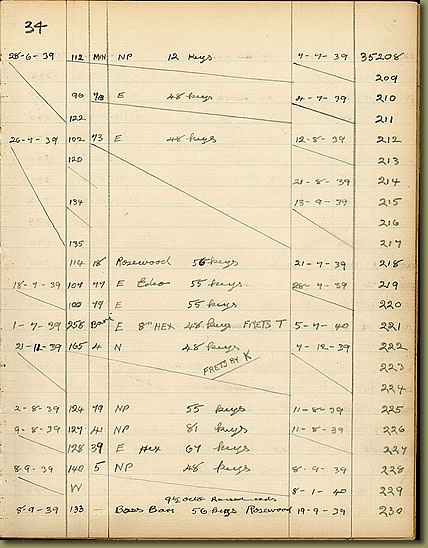 34
28-6-39 112 MIN NP 12 Keys 4-7-39 35208
209
98 78 E 48 keys 4-7-39 210
122 211
26-7-39 102 73 E 48 keys 12-8-39 212
120 213
21-8-39 214
134 13-9-39 215
216
135 217
114 18 Rosewood 56 keys 21-7-39 218
18-7-39 104 77 E Edeo 55 keys 28-7-39 219
100 79 E 55 keys 220
1-7-39 258 Bari E 8" HEX 48 keys FRETS T 5-7-40 221
21-12-39 165 4 N 48 keys 7-12-39 222
FRETS BY K 223
224
2-8-39 124 79 NP 55 keys 11-8-39 225
9-8-39 127 41 NP 81 keys 11-8-39 226
128 39 E Hex 67 keys 227
8-9-39 140 5 NP 48 keys 8-9-39 228
W 8-1-40 229
9½ octo Raised ends
8-9-39 133 — Bass Bari 56 keys Rosewood 19-9-39 230